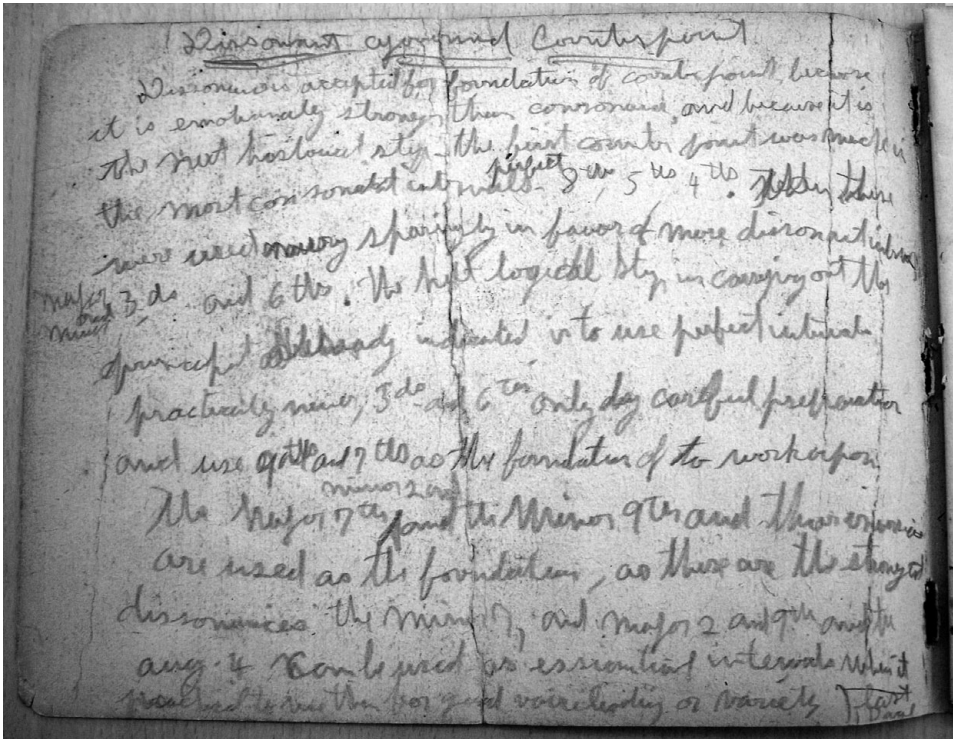 Dissonant Counterpoint
Dissonance is accepted for foundation of counterpoint, because
it is emotionally stronger than consonance, and because it is
the next historical step. the first counter point was made in
the most consonant intervals - perfect 8ths, 5ths 4ths. then these
were used sparingly in favor of more dissonant
major and minor 3ds and 6ths. The next logical step in carrying out the
already indicated is to use perfect intervals
practically never, 3ds and 6ths only by careful preparation
and use and 7ths as the foundation to work upon
The Major 7ths minor 2nd and the Minor 9ths and
are used as the foundation, as these are the strongest
dissonances the minor 7, and major 2 and 9th and the
aug. 4 can be used as essential intervals when it
to use them for good voice leading or variety